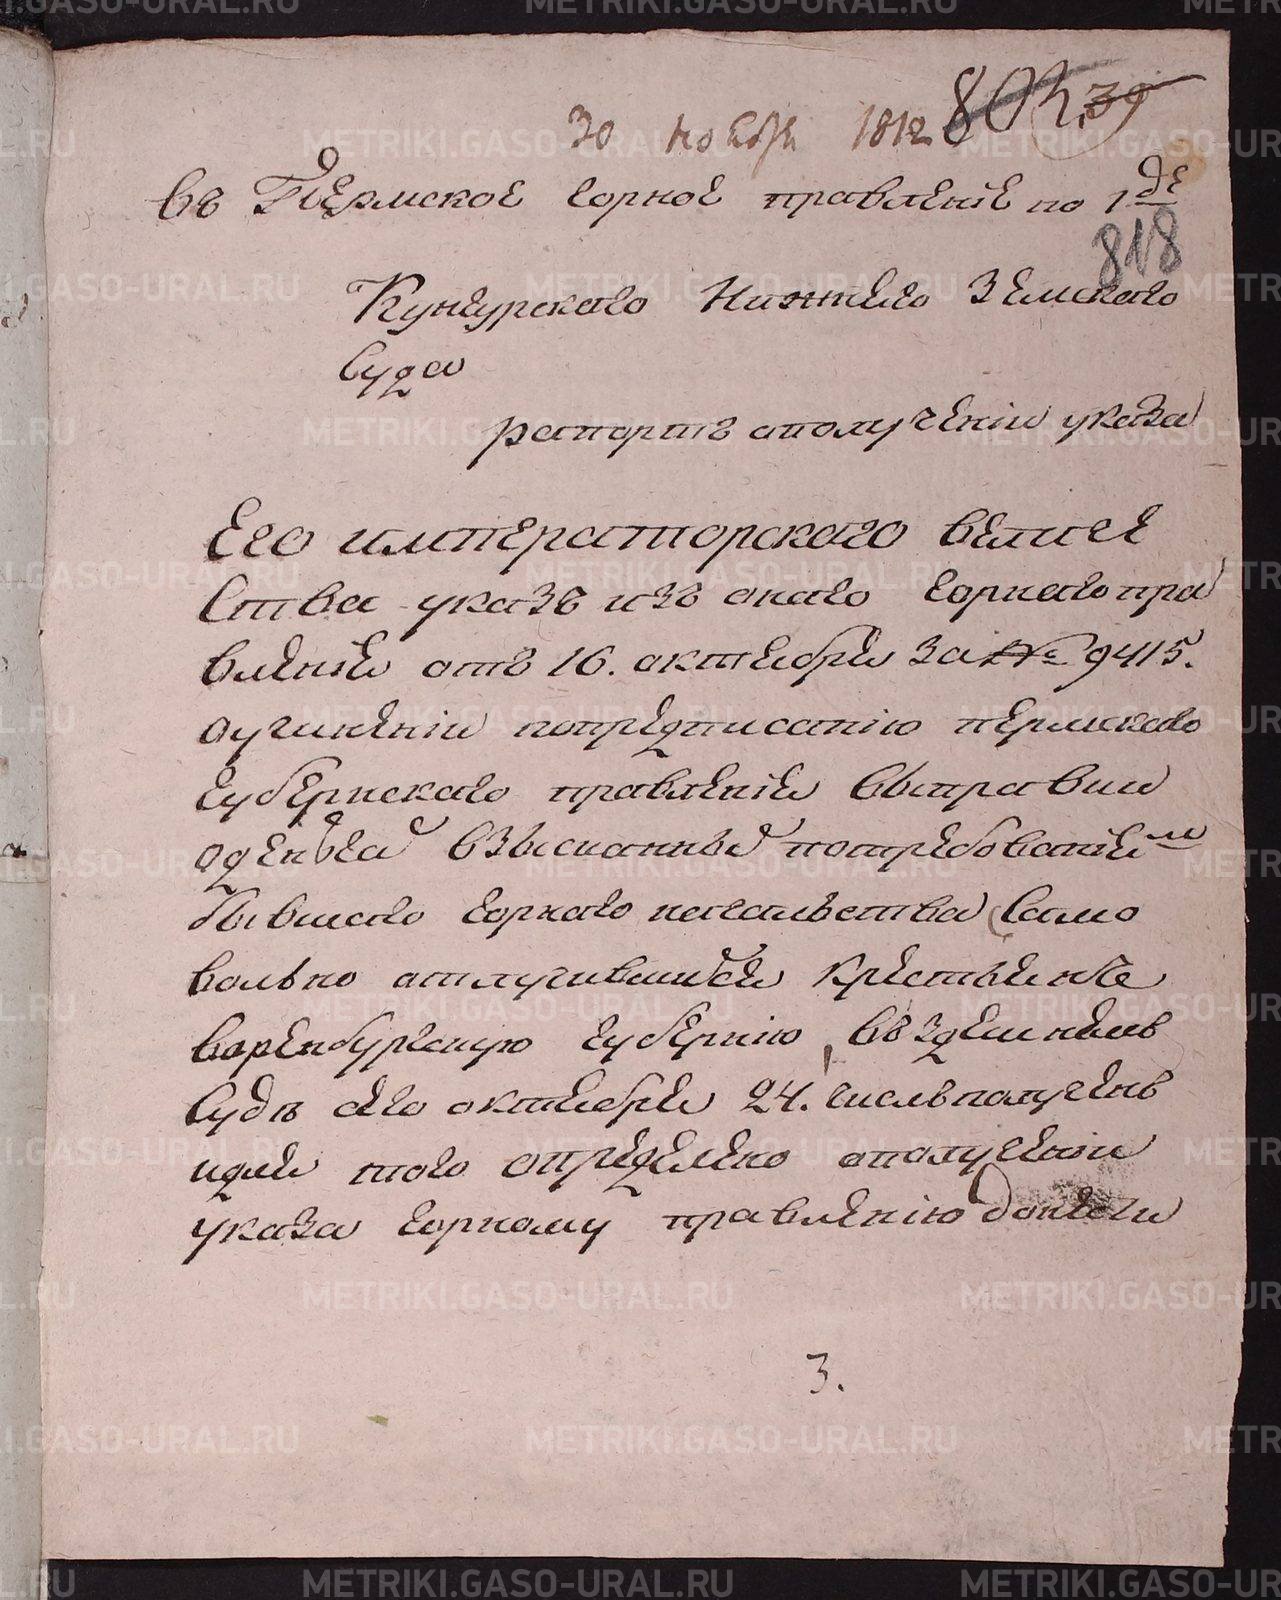 803, 39
30 ноября 1812
въ Пермское горное правленіе по 1 де
818
Кунгурскаго Нижняго Земскаго
Суда
рапортъ ополученіи указа
Его императорскаго величе
Ства указъ изъ онаго горнаго пра
вленія отъ 16. октября за № 9415.
оучиненіи попредписанію пермскаго
губернскаго правленія выправки
оденьгахъ взысканныхъ потребованіям
бывшаго горнаго начальства Само
вольно отлучившейся крестьянке
воренбургскую губернію, въздешнемъ
Суде сего октября 24. числъ полученъ
идля того определено ополученіи
указа горному правленію донести
3.